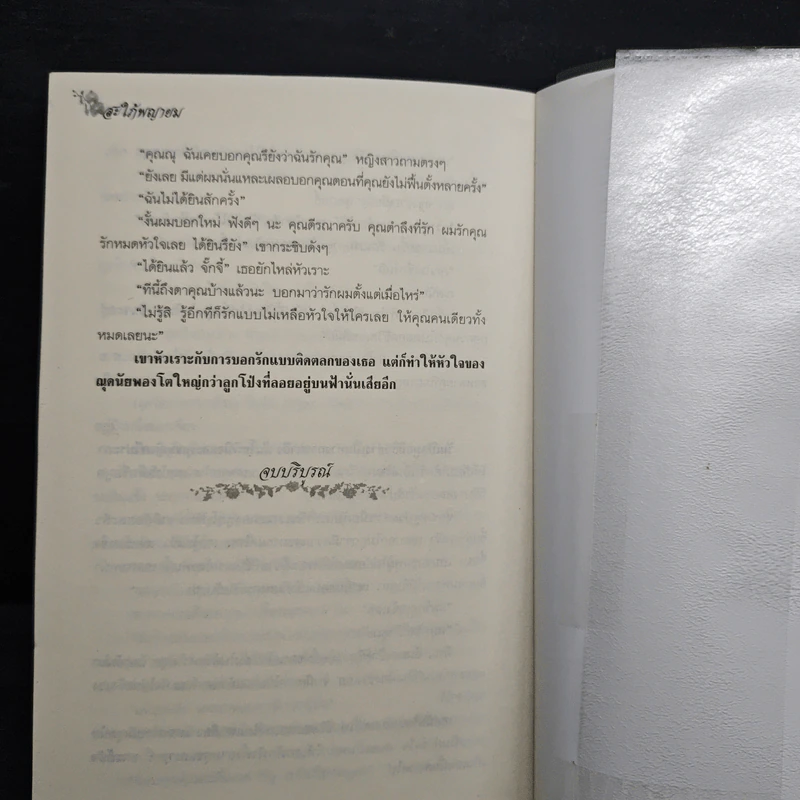 สะใภ้พญายม
"คุณณุ ฉันเคยบอกคุณรึยังว่าฉันรักคุณ" หญิงสาวถามตรงๆ
"ยังเลย มีแต่ผมนั่นแหละเผลอบอกคุณตอนที่คุณยังไม่ฟื้นตั้งหลายครั้ง"
"ฉันไม่ได้ยินสักครั้ง"
"งั้นผมบอกใหม่ ฟังดีๆ นะ คุณตีรณาครับ คุณตำลึงที่รัก ผมรักคุณ
รักหมดหัวใจเลย ได้ยินรึยัง" เขากระซิบดังๆ
"ได้ยินแล้ว จั๊กจี้" เธอยักไหล่หัวเราะ
"ทีนี้ถึงตาคุณบ้างแล้วนะ บอกมาว่ารักผมตั้งแต่เมื่อไหร่"
"ไม่รู้สิ รู้อีกทีก็รักแบบไม่เหลือหัวใจให้ใครเลย ให้คุณคนเดียวทั้ง
หมดเลยนะ"
เขาหัวเราะกับการบอกรักแบบติดตลกของเธอ แต่ก็ทำให้หัวใจของ
ณุดนัยพองโตใหญ่กว่าลูกโป่งที่ลอยอยู่บนฟ้านั่นเสียอีก
จบบริบูรณ์